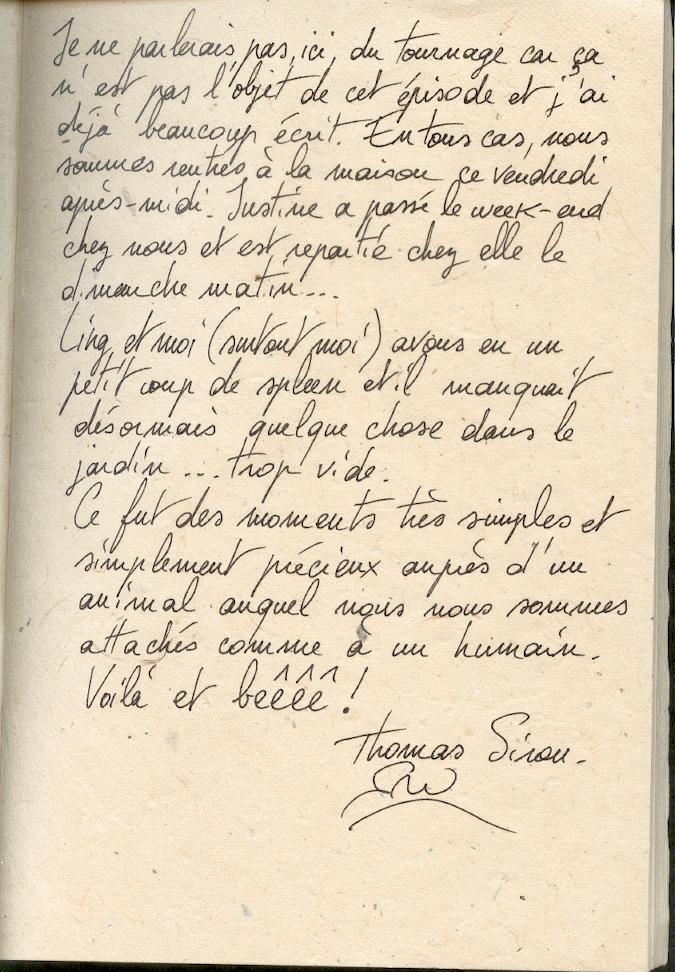 Je ne parlerais pas, ici, du tournage car ça
n'est pas l'objet de cet épisode et j'ai
déjà beaucoup écrit. En tous cas, nous
sommes rentrés à la maison ce vendredi
après-midi. Justine a passé le week-end
chez nous et est repartie chez elle le
dimanche matin...
Cinq et moi (surtout moi) avons eu un
petit coup de spleen et il manquait
désormais quelque chose dans le
jardin... trop vide.
Ce fut des moments très simples et
simplement précieux auprès d'un
animal auquel nous nous sommes
attachés comme à un humain.
Voilà et bêêêê !
Thomas Sirou.